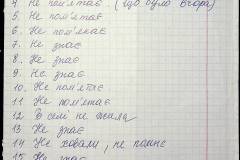 4. Не пам'ятає. (Що було вчора)
5. Не пом'ятає
6. Не пом'ятає
7. Не знає
8. Не знає
9. Не знає
10. Не пом'ятає
11. Не пом'ятає
12 В селі не жила
13 Не знає
14 Не ховали, не
15 Не знає